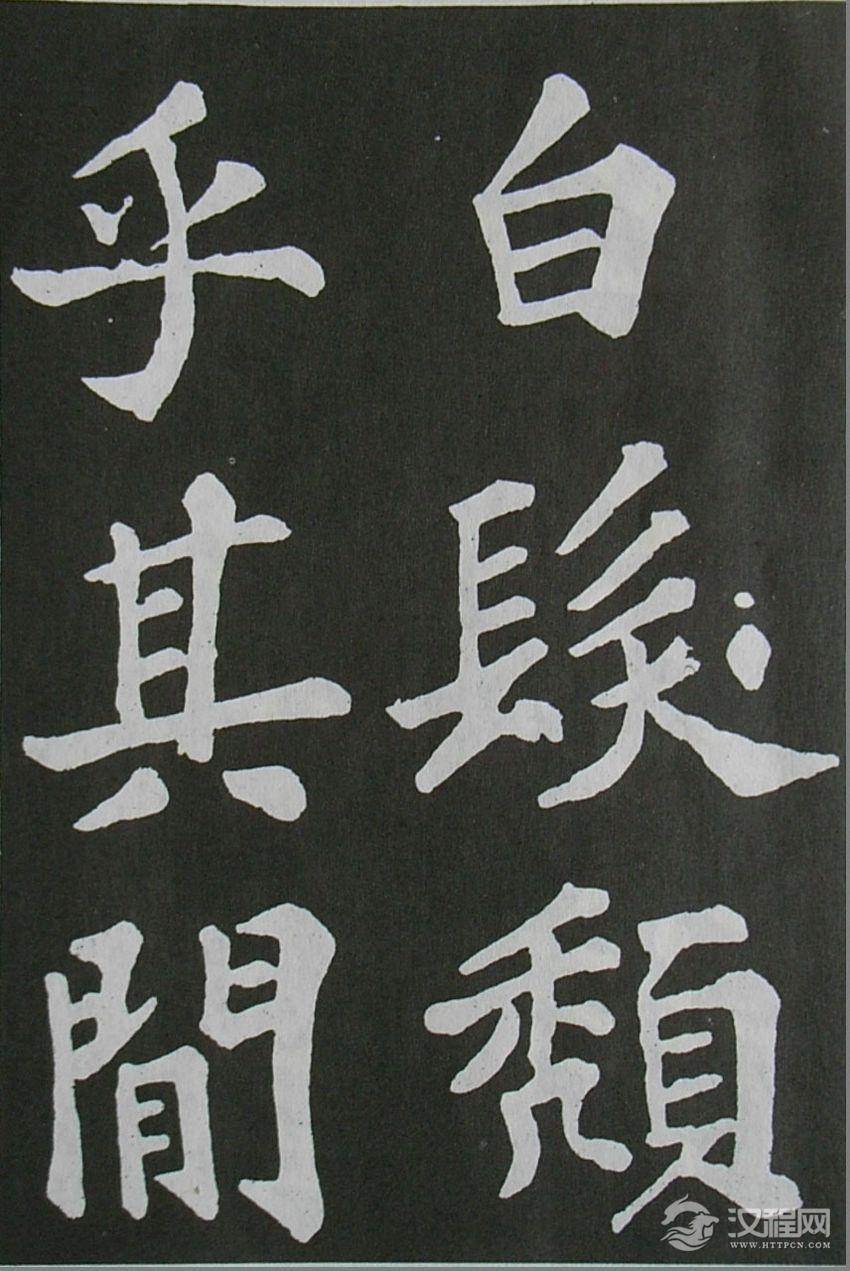 白髮頹
乎其間
汉程网
WWW.HTTPCN.COM